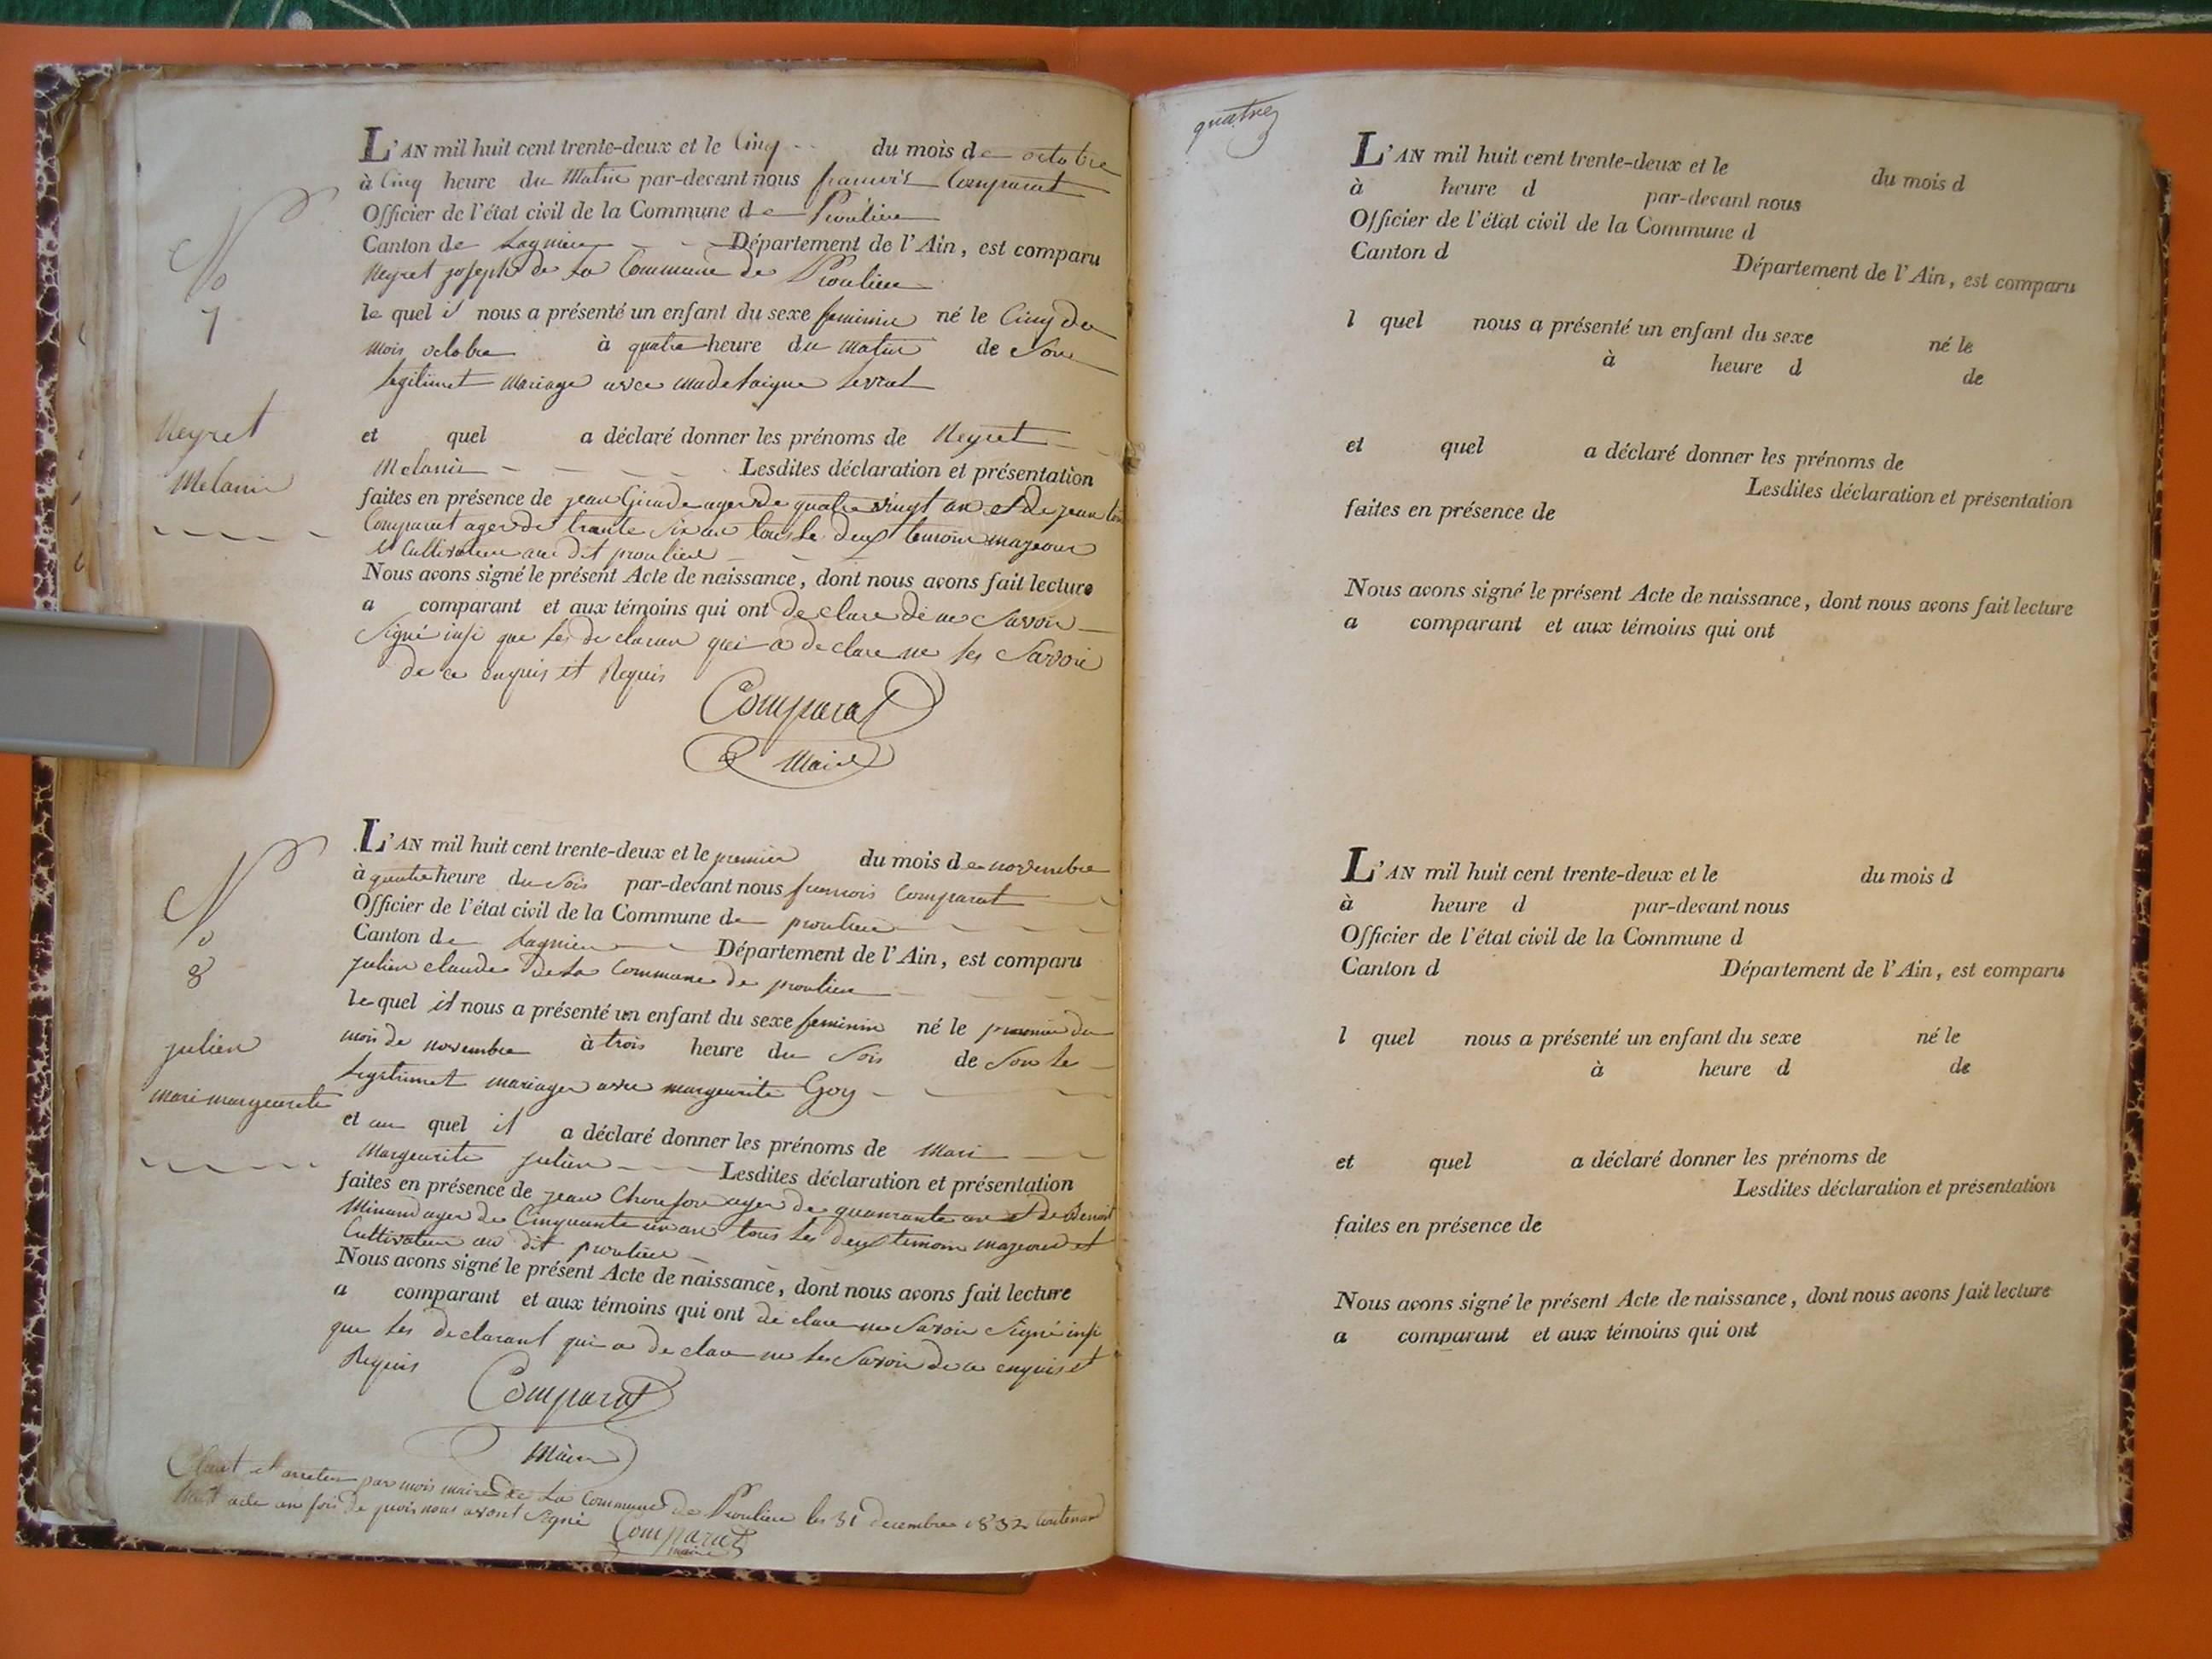 L'AN mil huit cent trente-deux et le Cinq du mois de octobre
à Cinq heure du Matin par-devant nous francois Comparat
Officier de l'état civil de la Commune de Proulieu
Canton de Lagnieu Département de l'Ain, est comparu
Neyret joseph de La Commune de Proulieu
No
7
le quel il nous a présenté un enfant du sexe feminin né le Cinq du
mois octobre à quatre heure du matin de Son
Legitimet Mariage avec
Neyret
Melanie
et quel a déclaré donner les prénoms de Neyret
Melanie Lesdites déclaration et présentation
faites en présence de jean ager de quatre vingt an et de jean
Comparat ager de trante Six an tous Le deux temoin majeour
et Cultivateur au dit proulieu
Nous avons signé le présent Acte de naissance, dont nous avons fait lecture
a comparant et aux témoins qui ont de clare de ne Savoir
Signé insi que Les de claran qui a de clare ne Les Savoir
de ce enquis et Requis
Comparat
Maire
L'AN mil huit cent trente-deux et le premier du mois de novembre
à quatre heure du Soir par-devant nous francois Comparat
Officier de l'état civil de la Commune de proulieu
Canton de Lagnieu Département de l'Ain, est comparu
julien claude de La Commune de proulieu
No
8
le quel il nous a présenté un enfant du sexe feminin né le premier du
mois de novembre à trois heure du Soir de Son Le
Legitimet mariager avec margeurite Goy
julien
mari margeurite
et au quel il a déclaré donner les prénoms de Mari
Margeurite julien Lesdites déclaration et présentation
faites en présence de jean ager de quarante an et de Benoit
Minand ager de Cinquante un an tous Les deux temoin majeour et
Cultivateur au dit proulieu
Nous avons signé le présent Acte de naissance, dont nous avons fait lecture
a comparant et aux témoins qui ont de clare ne Savoir Signé insi
que Les declarant qui a de clare ne Les Savoir de ce enquis et
Requis
Comparat
Maire
Claut et arreter par mois maire de La Commune de Proulieu les 31 decembre 1832 Contenand
huit acte en fois de quois nous avont Signé
Comparat
maire
quatre
L'AN mil huit cent trente-deux et le du mois d
à heure d par-devant nous
Officier de l'état civil de la Commune d
Canton d Département de l'Ain, est comparu
l quel nous a présenté un enfant du sexe né le
à heure d de
et quel a déclaré donner les prénoms de
Lesdites déclaration et présentation
faites en présence de
Nous avons signé le présent Acte de naissance, dont nous avons fait lecture
a comparant et aux témoins qui ont
L'AN mil huit cent trente-deux et le du mois d
à heure d par-devant nous
Officier de l'état civil de la Commune d
Canton d Département de l'Ain, est comparu
l quel nous a présenté un enfant du sexe né le
à heure d de
et quel a déclaré donner les prénoms de
Lesdites déclaration et présentation
faites en présence de
Nous avons signé le présent Acte de naissance, dont nous avons fait lecture
a comparant et aux témoins qui ont